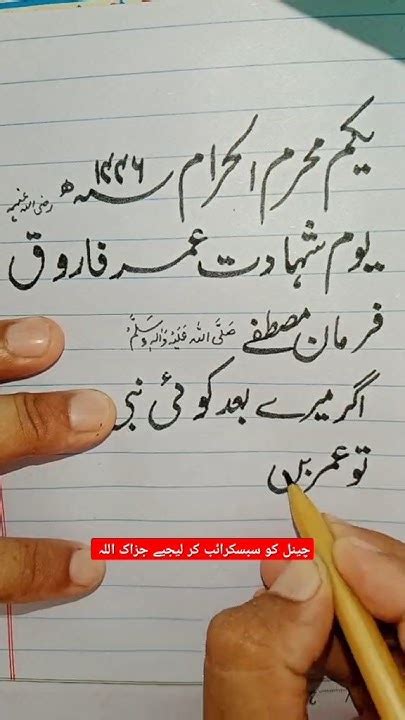 یکم محرم الحرام سنہ ۱۴۴۶ھ
یوم شہادت عمر فاروق رضی اللہ عنہ
فرمان مصطفے صَلَّی اللہ عَلَیْہِ وَاٰلِہٖ وَسَلَّمْ
اگر میرے بعد کوئی نبی
تو عمر بن
چینل کو سبسکرائب کر لیجیے جزاک اللہ